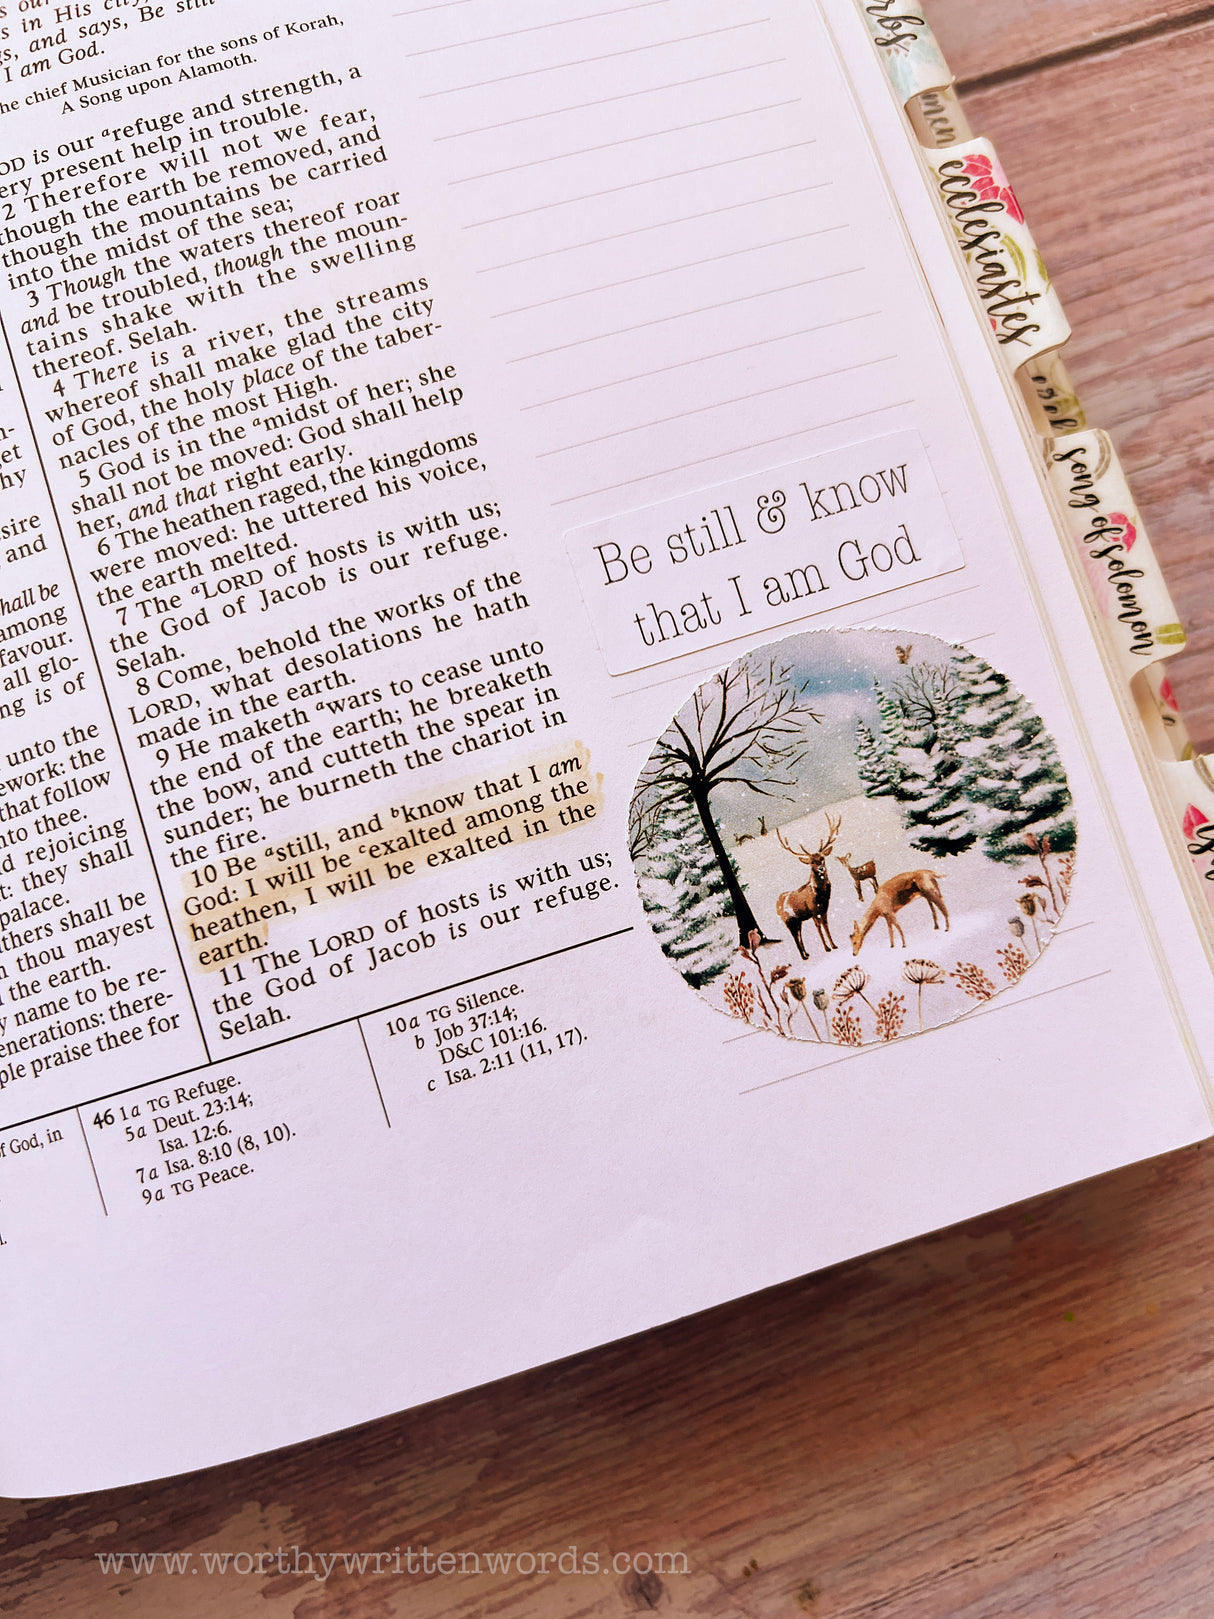 s in His city,
gs, and says, Be still
I am God.
he chief Musician for the sons of Korah,
A Song upon Alamoth.
OD is our ᵃrefuge and strength, a
ery present help in trouble.
2 Therefore will not we fear,
though the earth be removed, and
though the mountains be carried
into the midst of the sea;
3 Though the waters thereof roar
and be troubled, though the moun-
tains shake with the swelling
thereof. Selah.
4 There is a river, the streams
whereof shall make glad the city
of God, the holy place of the taber-
nacles of the most High.
5 God is in the ᵃmidst of her; she
shall not be moved: God shall help
her, and that right early.
6 The heathen raged, the kingdoms
were moved: he uttered his voice,
the earth melted.
7 The ᵃLORD of hosts is with us;
the God of Jacob is our refuge.
Selah.
8 Come, behold the works of the
LORD, what desolations he hath
made in the earth.
9 He maketh ᵃwars to cease unto
the end of the earth; he breaketh
the bow, and cutteth the spear in
sunder; he burneth the chariot in
the fire.
10 Be ᵃstill, and ᵇknow that I am
God: I will be ᶜexalted among the
heathen, I will be exalted in the
earth.
11 The LORD of hosts is with us;
the God of Jacob is our refuge.
Selah.
n-
get
hy
sire
and
hall be
among
favour.
all glo-
ng is of
unto the
ework: the
that follow
nto thee.
d rejoicing
t: they shall
palace.
thers shall be
n thou mayest
the earth.
y name to be re-
enerations: there-
ple praise thee for
f God, in
46 1a TG Refuge.
5a Deut. 23:14;
Isa. 12:6.
7a Isa. 8:10 (8, 10).
9a TG Peace.
10a TG Silence.
b Job 37:14;
D&C 101:16.
c Isa. 2:11 (11, 17).
Be still & know
that I am God
rbs
men
ecclesiastes
song of solomon
www.worthywrittenwords.com